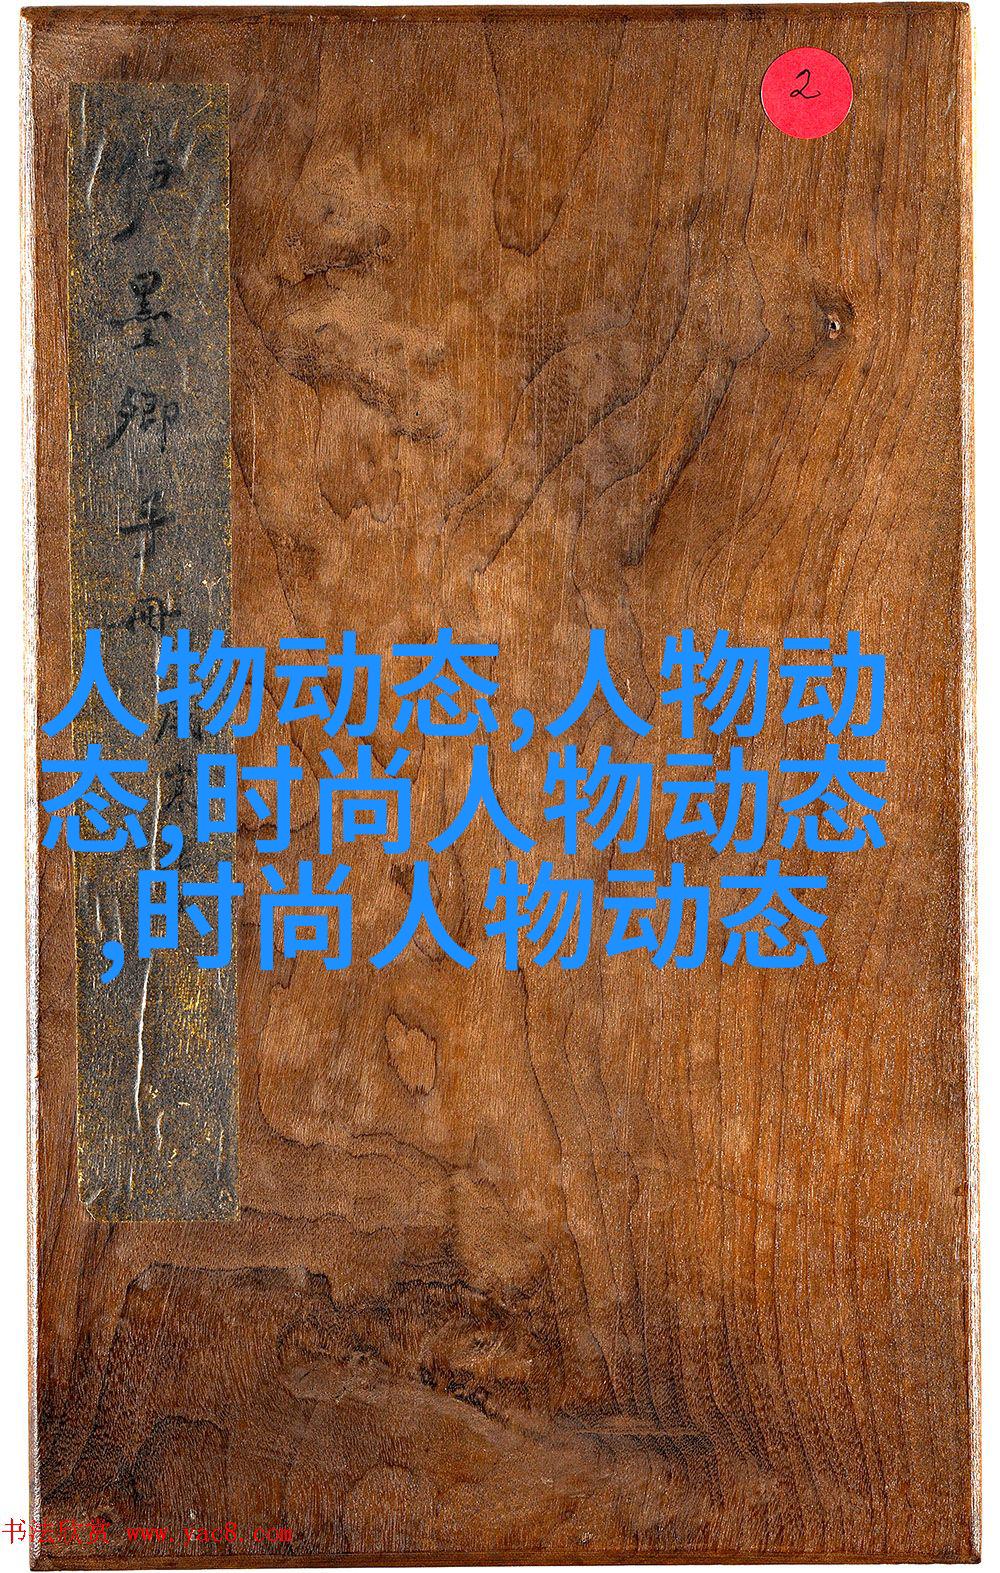 2
墨卿手册
人物动态,人物动
态,时尚人物动态
,时尚人物动态
书法欣赏 www.yac8.com